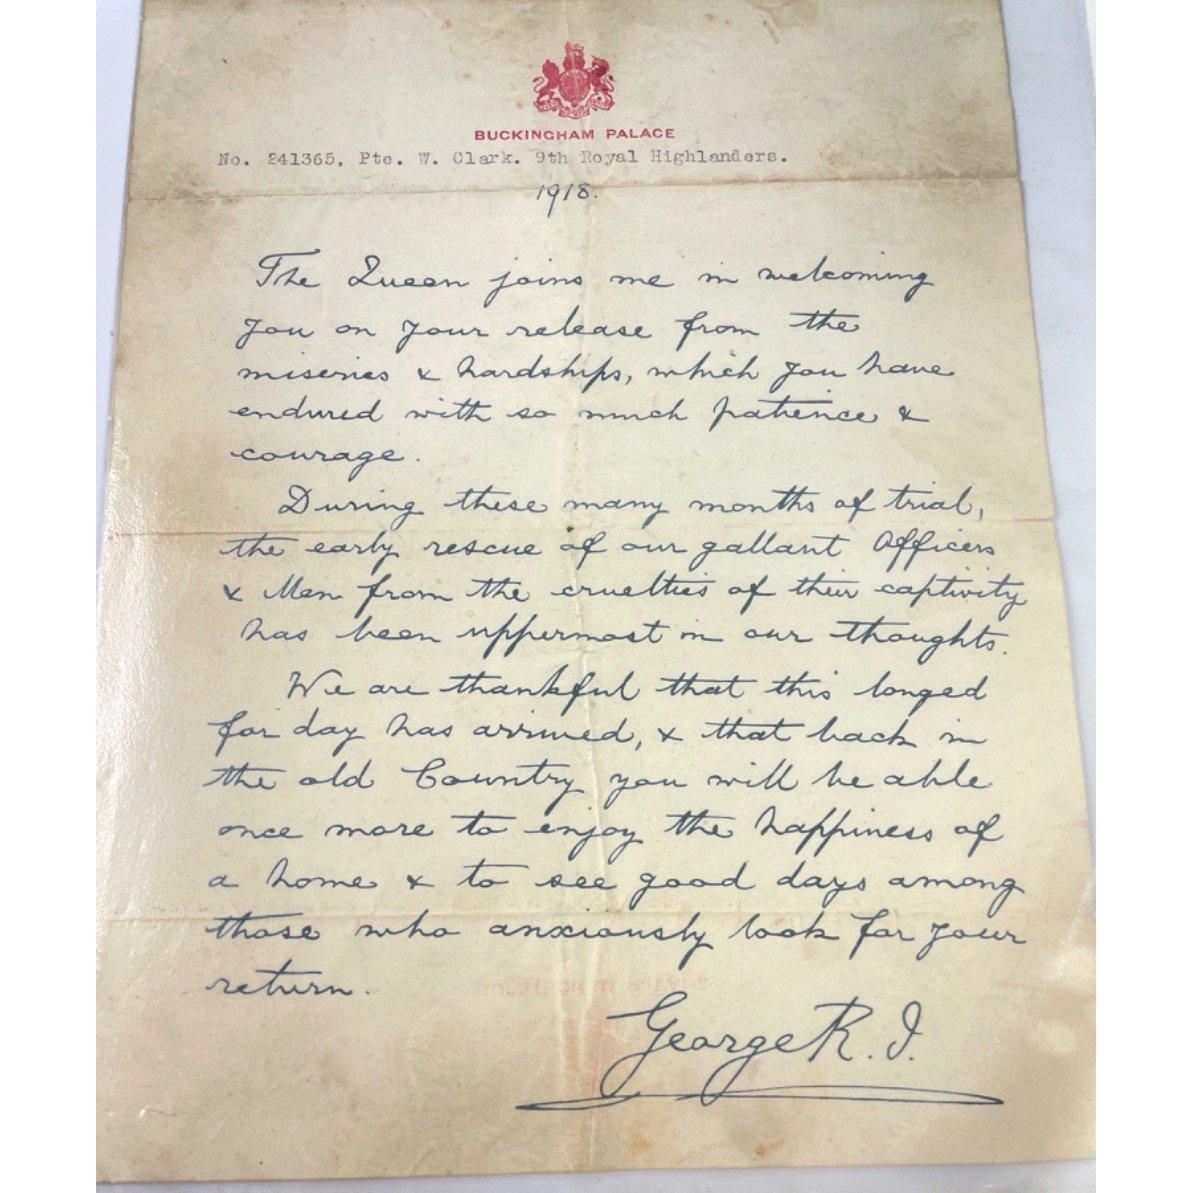 BUCKINGHAM PALACE
No. 241365, Pte. W. Clark. 9th Royal Highlanders.
1918.
The Queen joins me in welcoming
you on your release from the
miseries & hardships, which you have
endured with so much patience &
courage.
During these many months of trial,
the early rescue of our gallant Officers
& Men from the cruelties of their captivity
has been uppermost in our thoughts.
We are thankful that this longed
for day has arrived, & that back in
the old Country you will be able
once more to enjoy the happiness of
a home & to see good days among
those who anxiously look for your
return.
George R.I.